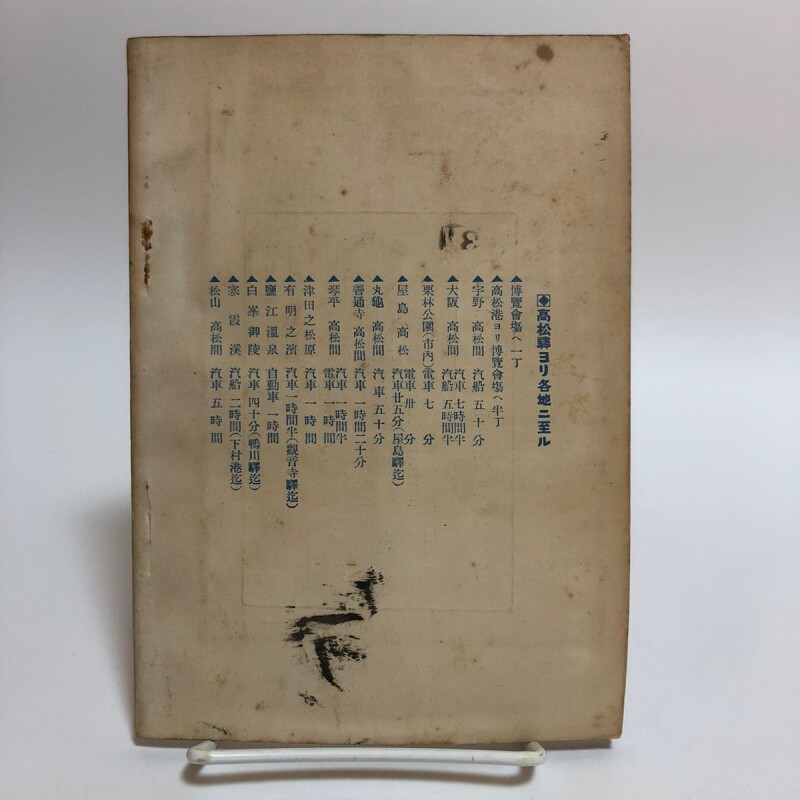 高松驛ヨリ各地ニ至ル
▲博覽會場ヘ一丁
▲高松港ヨリ博覽會場ヘ半丁
▲宇野 高松間 汽船 五十分
▲大阪 高松間 汽車 七時間半 汽船 五時間半
▲栗林公園(市內)電車 七分
▲屋島 高松 電車 卅分 汽車 廿五分(屋島驛迄)
▲丸龜 高松間 汽車 五十分
▲善通寺 高松間 汽車 一時間二十分
▲琴平 高松間 汽車 一時間半 電車 一時間
▲津田之松原 汽車 一時間
▲有明之濱 汽車一時間半(觀音寺驛迄)
▲鹽江溫泉 自動車 一時間
▲白峯御陵 汽車 四十分(鴨川驛迄)
▲寒霞溪 汽船 二時間(下村港迄)
▲松山 高松間 汽車 五時間